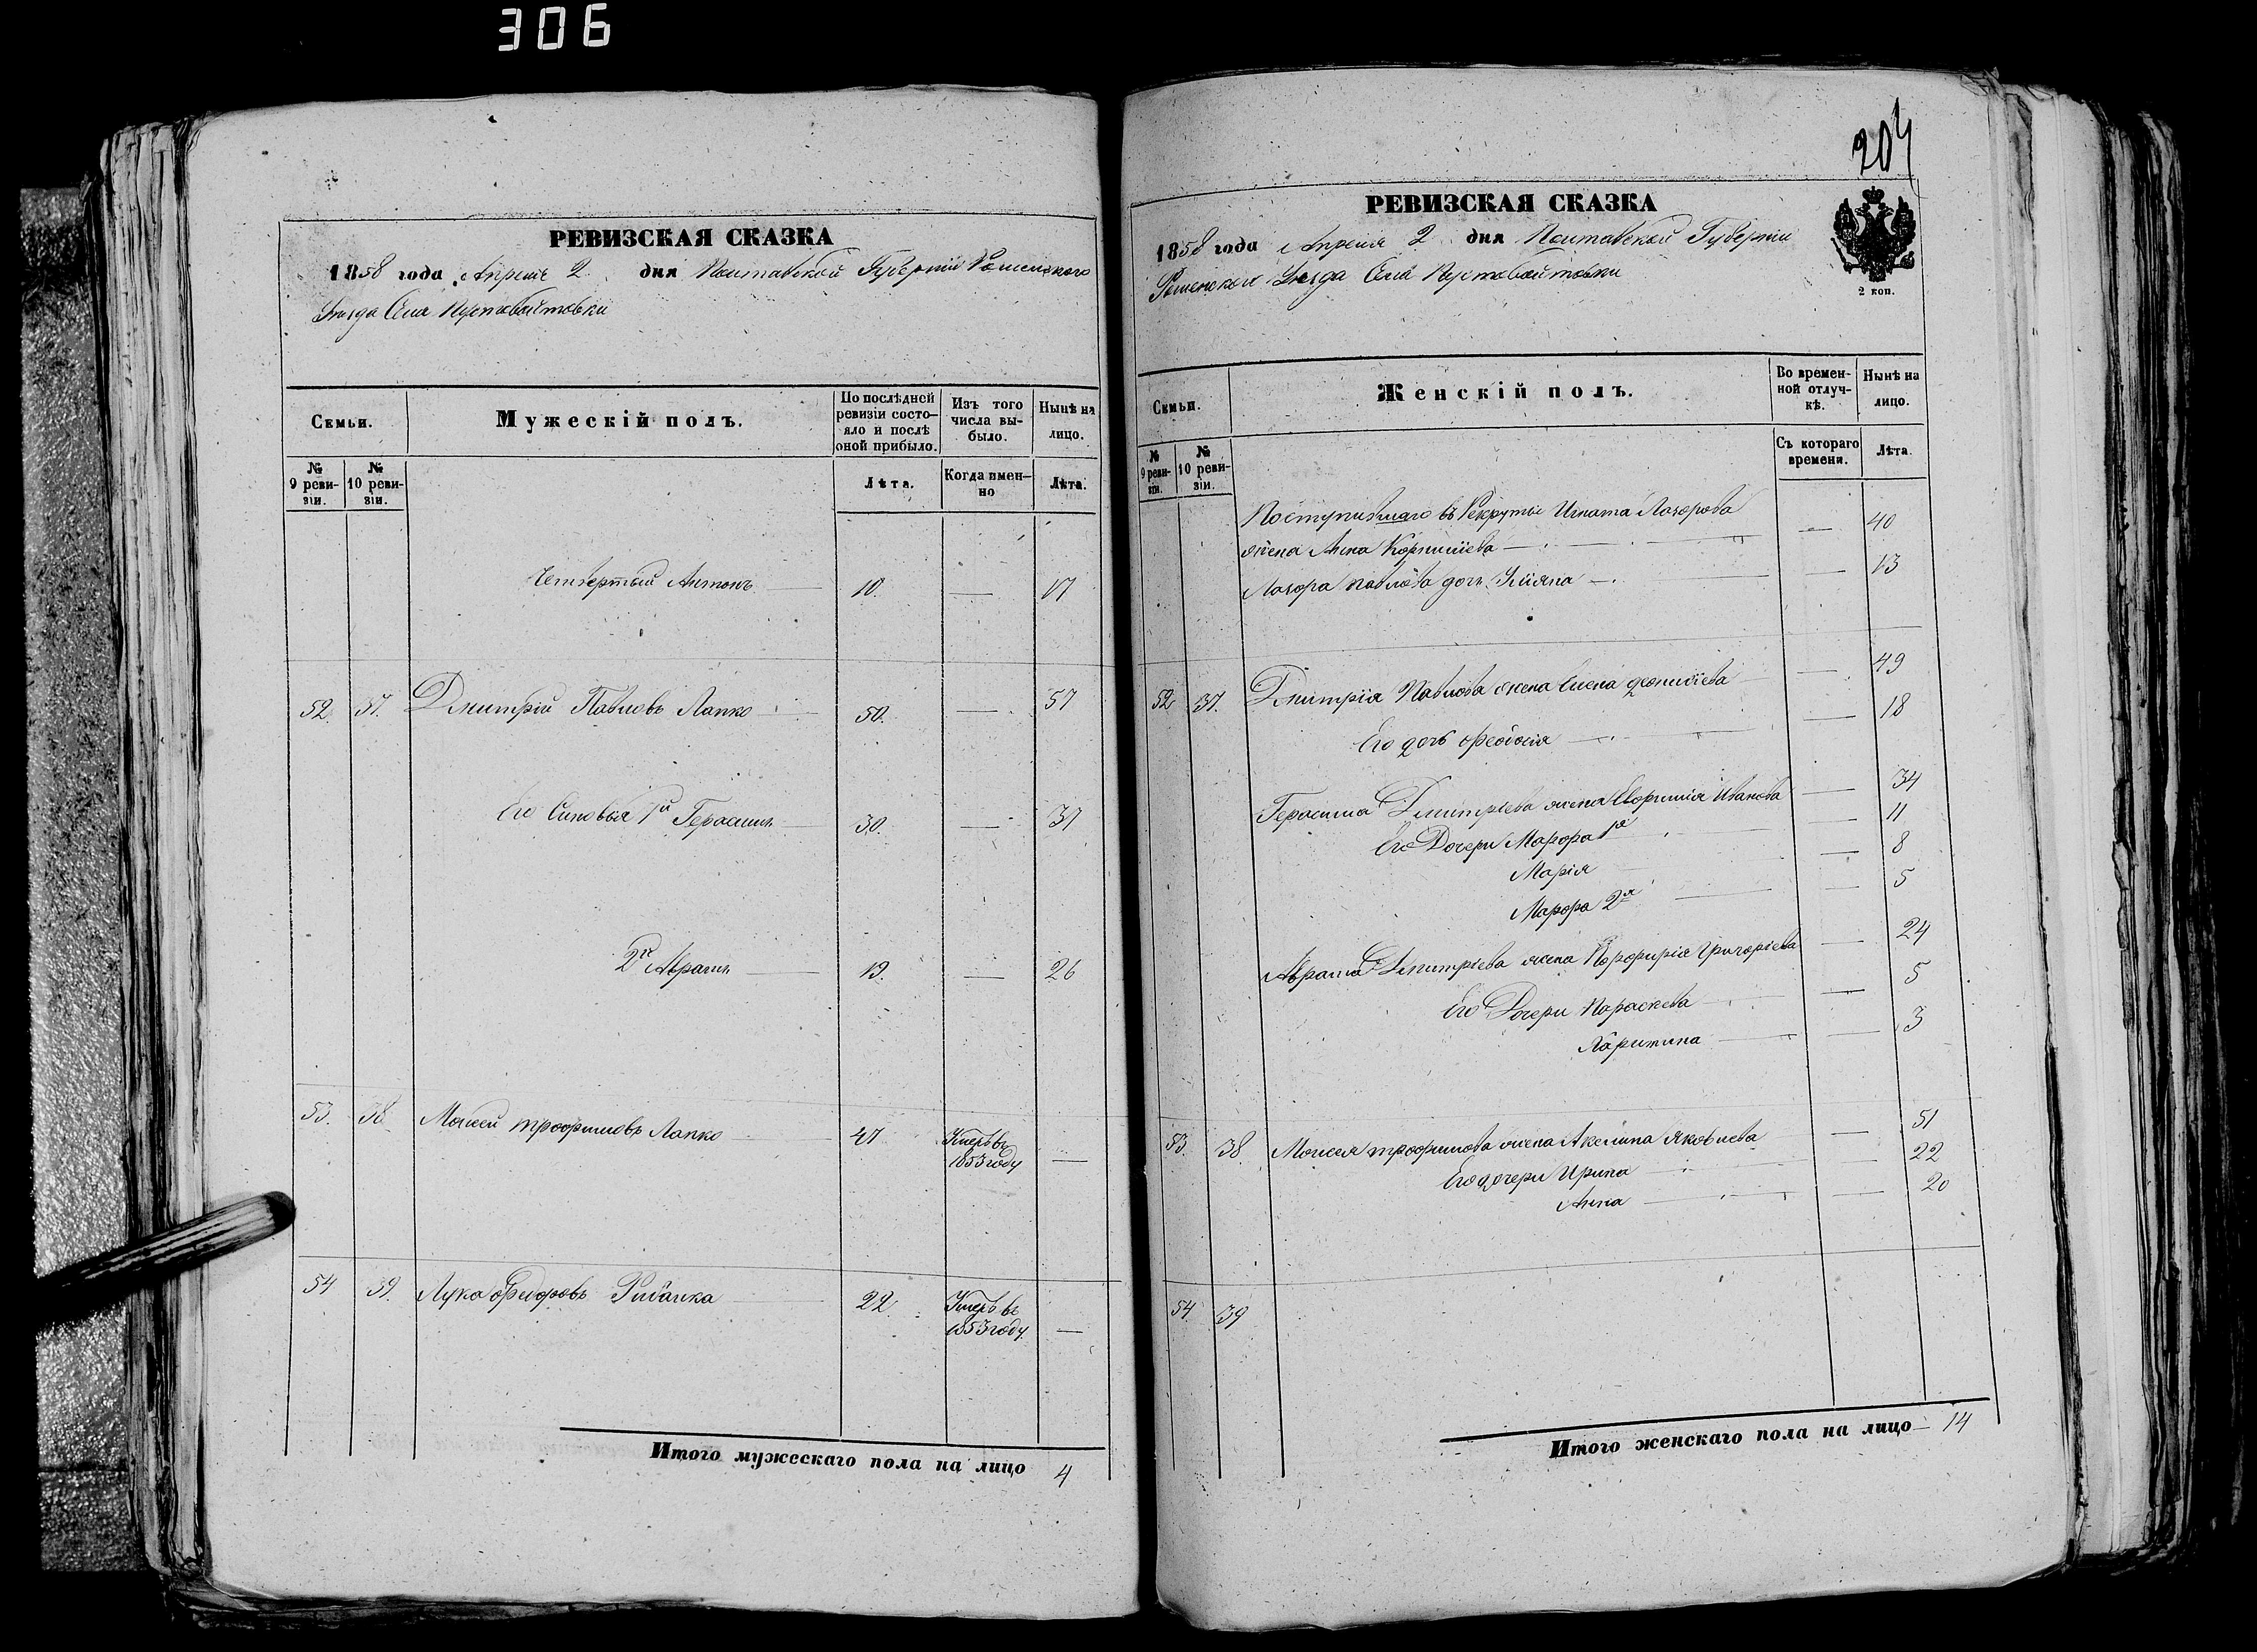 306
РЕВИЗСКАЯ СКАЗКА
1858 года Апреля 2 дня Полтавской Губернии Роменского
Уезда Села Пустовойтовки
Семьи.
Мужескій полъ.
По послѣдней ревизіи состо-
яло и послѣ оной прибыло.
Изъ того числа вы-
было.
Нынѣ на лицо.
№ 9 реви-
зіи.
№ 10 реви-
зіи.
Лѣта.
Когда имен-
но
Лѣта.
Четвертый Антонъ 10. — 17
52. 37. Дмитрій Павловъ Лапко 50. — 57
Его Синовья 1й Герасимъ 30. — 37
2й Аврамъ 19. — 26
53. 38 Моисей Трофимовъ Лапко 47 Умеръ въ
1853 году —
54 39. Лука Федоровъ 22. Умеръ въ
1853 году. —
Итого мужескаго пола на лицо 4
204
РЕВИЗСКАЯ СКАЗКА
1858 года Апреля 2 дня Полтавской Губернии
Роменского Уезда Села Пустовойтовки
2 коп.
Семьи.
Женскій полъ.
Во времен-
ной отлуч-
кѣ.
Нынѣ на
лицо.
№ 9 реви-
зіи.
№ 10 реви-
зіи.
Съ котораго
времени.
Лѣта.
Поступившаго въ Рекруты Игната Лазорова
жена Анна Корнилиева — 40
Лазора Павлова дочь Улияна — 13
52 37. Дмитрія Павлова жена Елена — 49
Его дочь Феодосія — 18
Герасима Дмитріева жена Иванова — 34
Его Дочери Марфа 1я — 11
Марія — 8
Марфа 2я — 5
Аврама Дмитріева жена Порфирія Григоріева — 24
Его Дочери Параскева — 5
Харитина — 3
53. 38. Моисея Трофимова жена Акелина Яковлева — 51
Его дочери Ирина 22
Анна — 20
54 39
Итого женскаго пола на лицо — 14